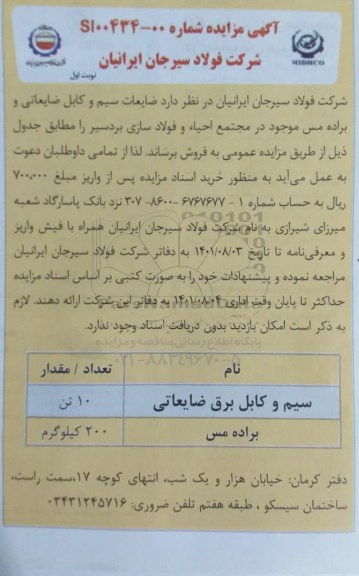 آگهی مزایده شماره SI۰۰۴۳۴-۰۰
شرکت فولاد سیرجان ایرانیان
نوبت اول
MIDHCO
شرکت فولاد سیرجان ایرانیان در نظر دارد ضایعات سیم و کابل ضایعاتی و
براده مس موجود در مجتمع احیاء و فولاد سازی بردسیر را مطابق جدول
ذیل از طریق مزایده عمومی به فروش برساند. لذا از تمامی داوطلبان دعوت
به عمل می‌آید به منظور خرید اسناد مزایده پس از واریز مبلغ ۷۰۰,۰۰۰
ریال به حساب شماره ۱ - ۶۷۶۷۶۷۷ -۸۶۰۰- ۳۰۷ نزد بانک پاسارگاد شعبه
میرزای شیرازی به نام شرکت فولاد سیرجان ایرانیان همراه با فیش واریز
و معرفی‌نامه تا تاریخ ۱۴۰۱/۰۸/۰۳ به دفاتر شرکت فولاد سیرجان ایرانیان
مراجعه نموده و پیشنهادات خود را به صورت کتبی بر اساس اسناد مزایده
حداکثر تا پایان وقت اداری ۱۴۰۱/۰۸/۰۴ به دفاتر این شرکت ارائه دهند. لازم
به ذکر است امکان بازدید بدون دریافت اسناد وجود ندارد.
پایگاه اطلاع رسانی مناقصه و مزایده
۰۲۱-۸۸۳۴۹۶۷۰-۵
نام تعداد / مقدار
سیم و کابل برق ضایعاتی ۱۰ تن
براده مس ۲۰۰ کیلوگرم
دفتر کرمان: خیابان هزار و یک شب، انتهای کوچه ۱۷،سمت راست،
ساختمان سیسکو ، طبقه هفتم تلفن ضروری: ۰۳۴۳۱۲۴۵۷۱۶